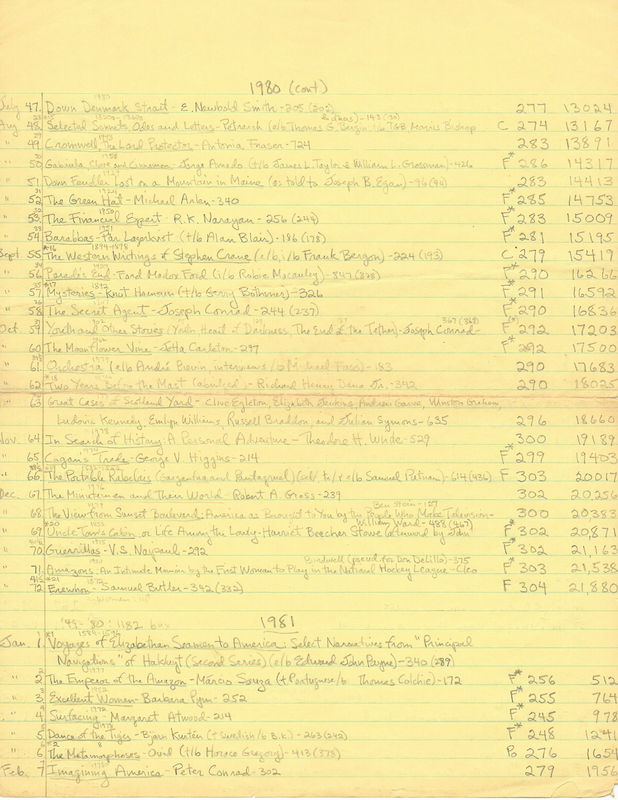 1980 (cont)
July 47. Down Denmark Strait - E. Newbold Smith - 205 (202) 277 13024
Aug 48. Selected Sonnets, Odes and Letters - Petrarch (e/b Thomas G. Bergin - Morris Bishop & others) - 143 C 274 13167
" 49. Cromwell, The Lord Protector - Antonia Fraser - 724 283 13891
" 50. Gabriela, Clove and Cinnamon - Jorge Amado (t/b James L. Taylor & William L. Grossman) - 426 F* 286 14317
" 51. Donn Fendler Lost on a Mountain in Maine (as told to Joseph B. Egan) - 96 (94) 283 14413
" 52. The Green Hat - Michael Arlen - 340 F* 285 14753
" 53. The Financial Expert - R.K. Narayan - 256 (244) F* 283 15009
" 54. Barabbas - Pär Lagerkvist (t/b Alan Blair) - 186 (178) F* 281 15195
Sept. 55. The Western Writings of Stephen Crane (e/b, i/b Frank Bergon) - 224 (193) C 279 15419
" 56. Parade's End - Ford Madox Ford (i/b Robie Macauley) - 847 F* 290 16266
" 57. Mysteries - Knut Hamsun (t/b Gerry Bothmer) - 326 F* 291 16592
" 58. The Secret Agent - Joseph Conrad - 244 (237) F* 290 16836
Oct. 59. Youth and Other Stories (Youth, Heart of Darkness, The End of the Tether) - Joseph Conrad - 367 F* 292 17203
" 60. The Moonflower Vine - Jetta Carleton - 297 F* 292 17500
" 61. Orchestra (e/b André Previn, interviews /b Michael Foss) - 183 290 17683
" 62. Two Years Before the Mast (abridged) - Richard Henry Dana Jr. - 342 290 18025
" 63. Great Cases of Scotland Yard - Clive Egleton, Elizabeth Jenkins, Andrew Garve, Winston Graham,
Ludovic Kennedy, Emlyn Williams, Russell Braddon, and Julian Symons - 635 296 18660
Nov. 64. In Search of History: A Personal Adventure - Theodore H. White - 529 300 19189
" 65. Cogan's Trade - George V. Higgins - 214 F* 299 19403
" 66. The Portable Rabelais (Gargantua and Pantagruel) (sel/ t/ e/b Samuel Putnam) - 614 (436) F 303 20017
Dec. 67. The Minutemen and Their World - Robert A. Gross - 239 302 20,256
" 68. The View from Sunset Boulevard: America as Brought to You by the People Who Make Television - Ben Stein - 127 300 20,383
" 69. Uncle Tom's Cabin, or Life Among the Lowly - Harriet Beecher Stowe (afterword by John William Ward - 488 (467) F* 302 20,871
" 70. Guerrillas - V.S. Naipaul - 292 F* 302 21,163
" 71. Amazons: An Intimate Memoir by the First Woman to Play in the National Hockey League - Cleo Birdwell (pseud. for Don DeLillo) - 375 F* 303 21,538
" 72. Erewhon - Samuel Butler - 342 (332) F 304 21,880
'45-'80: 1182 bks
1981
Jan. 1. Voyages of Elizabethan Seamen to America: Select Narratives from "Principal
Navigations" of Hakluyt (Second Series) (e/b Edward John Payne) - 340 (289)
" 2. The Emperor of the Amazon - Márcio Souza (t. Portuguese/b Thomas Colchie) - 172 F* 256 512
" 3. Excellent Women - Barbara Pym - 252 F* 255 764
" 4. Surfacing - Margaret Atwood - 214 F* 245 978
" 5. Dance of the Tiger - Björn Kurtén (t Swedish/b B.K.) - 263 (242) F* 248 1241
" 6. The Metamorphoses - Ovid (t/b Horace Gregory) - 413 (378) Po 276 1654
Feb. 7. Imagining America - Peter Conrad - 302 279 1956